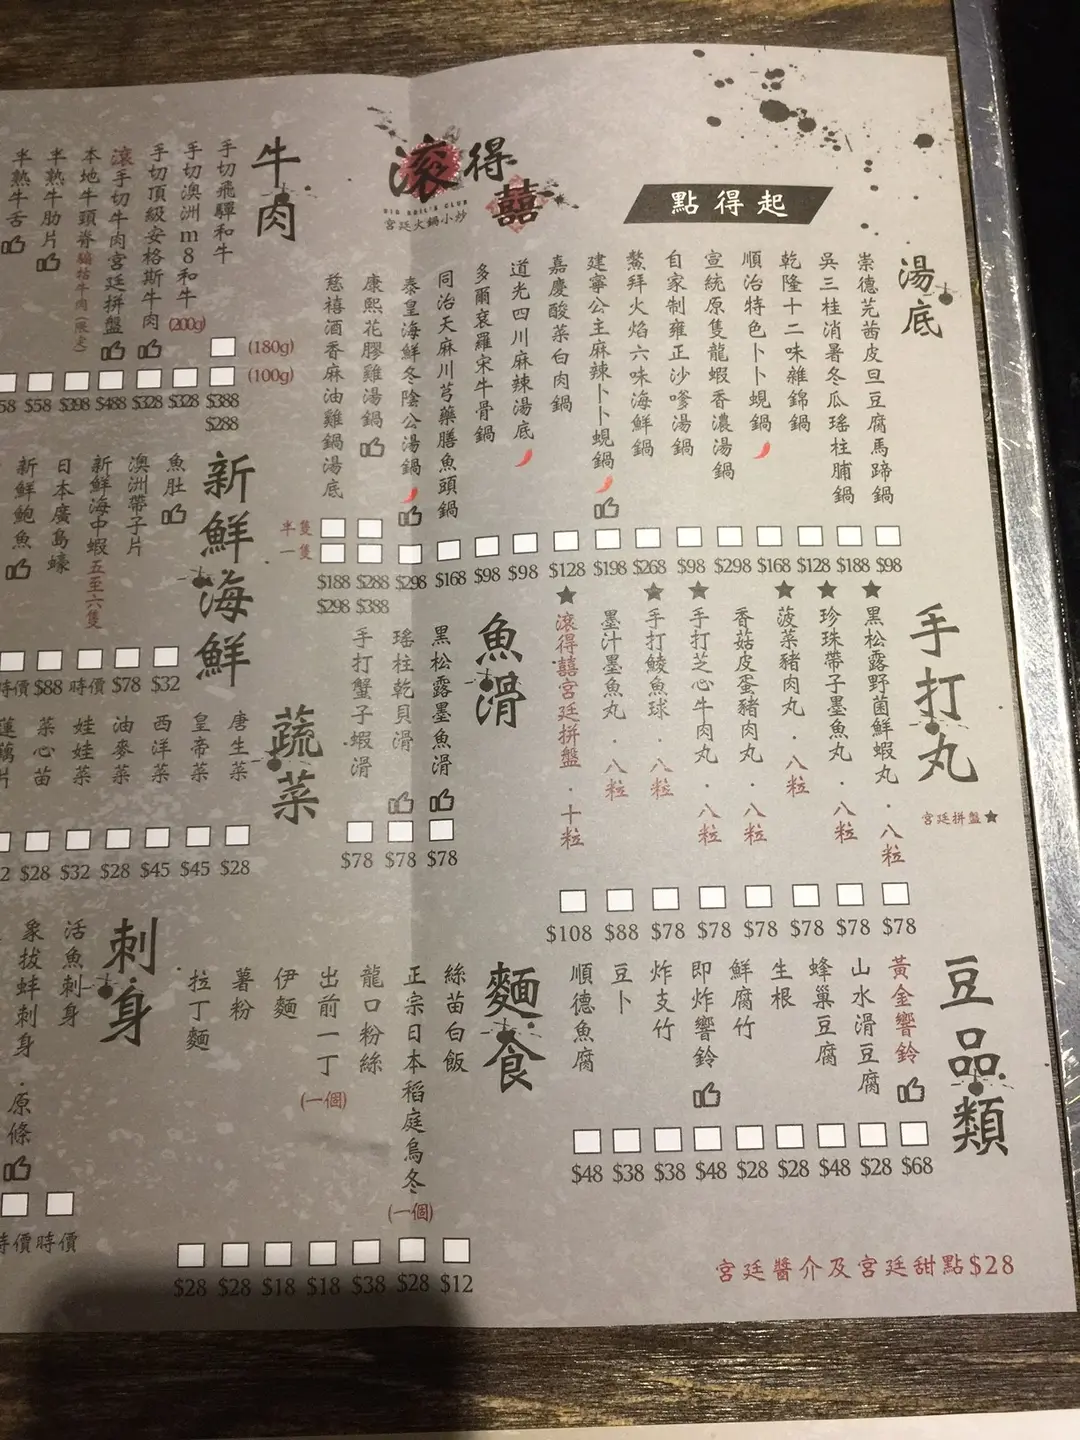 滾得囍
DID BOIL'S CLUB
宮廷火鍋小炒
點得起
湯底
崇德芫茜皮旦豆腐馬蹄鍋
$98
吳三桂消暑冬瓜瑤柱脯鍋
$188
乾隆十二味雜錦鍋
$128
順治特色卜卜蜆鍋
$168
宣統原隻龍蝦香濃湯鍋
$298
自家制雍正沙嗲湯鍋
$98
鰲拜火焰六味海鮮鍋
$268
建寧公主麻辣卜卜蜆鍋
$198
嘉慶酸菜白肉鍋
$128
道光四川麻辣湯底
$98
多爾袞羅宋牛骨鍋
$98
同治天麻川芎藥膳魚頭鍋
$168
秦皇海鮮冬陰公湯鍋
$298
康熙花膠雞湯鍋
$288
$388
慈禧酒香麻油雞鍋湯底
$188
$298
半隻
一隻
手打丸
宮廷拼盤★
★黑松露野菌鮮蝦丸．八粒
$78
★珍珠帶子墨魚丸．八粒
$78
★菠菜豬肉丸．八粒
$78
香菇皮蛋豬肉丸．八粒
$78
★手打芝心牛肉丸．八粒
$78
★手打鯪魚球．八粒
$78
墨汁墨魚丸．八粒
$88
★滾得囍宮廷拼盤．十粒
$108
魚滑
黑松露墨魚滑
$78
瑤柱乾貝滑
$78
手打蟹子蝦滑
$78
豆品類
黃金響鈴
$68
山水滑豆腐
$28
蜂巢豆腐
$48
生根
$28
鮮腐竹
$28
即炸響鈴
$48
炸支竹
$38
豆卜
$38
順德魚腐
$48
麵食
絲苗白飯
$12
正宗日本稻庭烏冬(一個)
$28
龍口粉絲
$38
出前一丁(一個)
$18
伊麵
$18
薯粉
$28
拉丁麵
$28
宮廷醬介及宮廷甜點$28
牛肉
手切飛驒和牛
(180g)
(100g)
$388
$288
手切澳洲m8和牛(200g)
$328
手切頂級安格斯牛肉
$328
滾手切牛肉宮廷拼盤
$488
本地牛頸脊
$398
半熟牛肋片
$58
半熟牛舌
58
新鮮海鮮
魚肚
$32
澳洲帶子片
$78
新鮮海中蝦五至六隻
時價
日本廣島蠔
$88
新鮮鮑魚
時價
蔬菜
唐生菜
$28
皇帝菜
$45
西洋菜
$45
油麥菜
$28
娃娃菜
$32
菜心苗
$28
蓮藕片
2
刺身
活魚刺身
時價
象拔蚌刺身．原條
時價